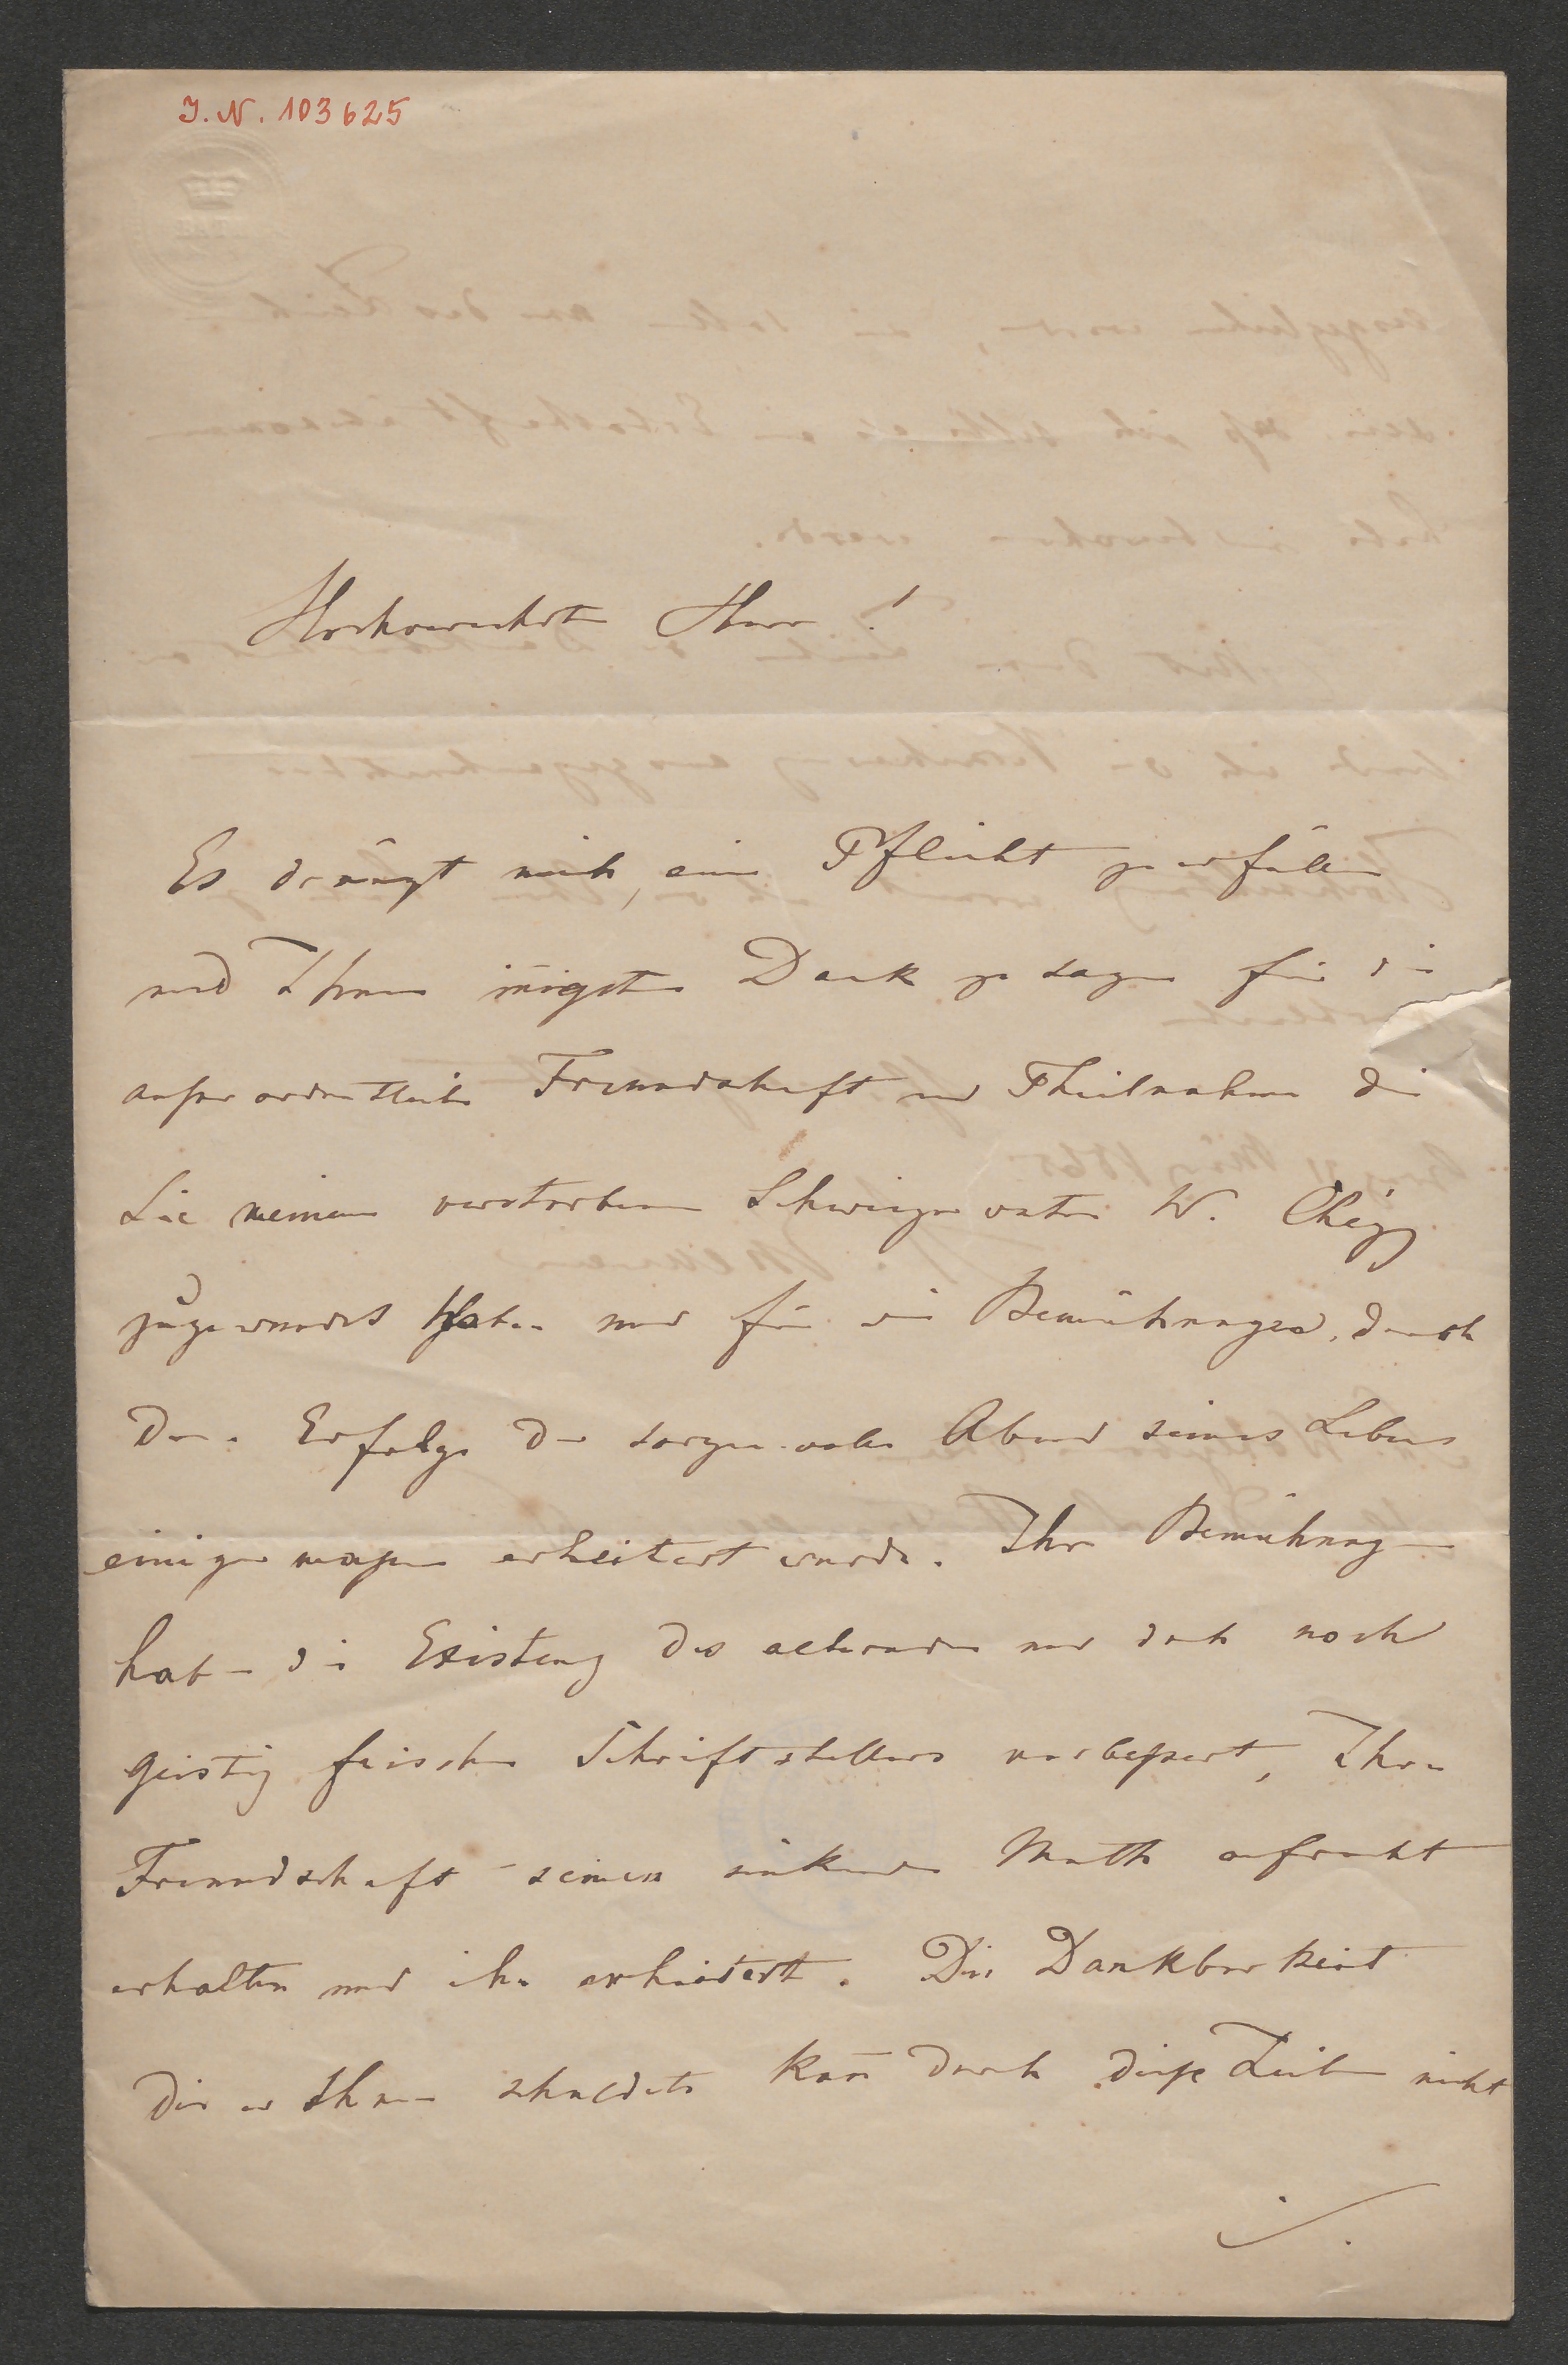 I. N. 103625
Hochverehrter Herr!
Es drängt mich, eine Pflicht zu erfüllen
und Ihnen innigsten Dank zu sagen für die
außerordentliche Freundschaft und Theilnahme die
Sie meinem verstorbenen Schwiegervater W. Chézy
zugewendet haben und für die Bemühungen, durch
deren Erfolge der sorgenvolle Abend seines Lebens
einigermaßen erheitert wurde. Ihre Bemühungen
haben die Existenz des alternden und doch noch
geistig frischen Schriftstellers verbeßert, Ihre
Freundschaft seinen sinkenden Muth aufrecht
erhalten und ihn erheitert. Die Dankbarkeit
die er Ihnen schuldete kann durch diese Zeilen nicht